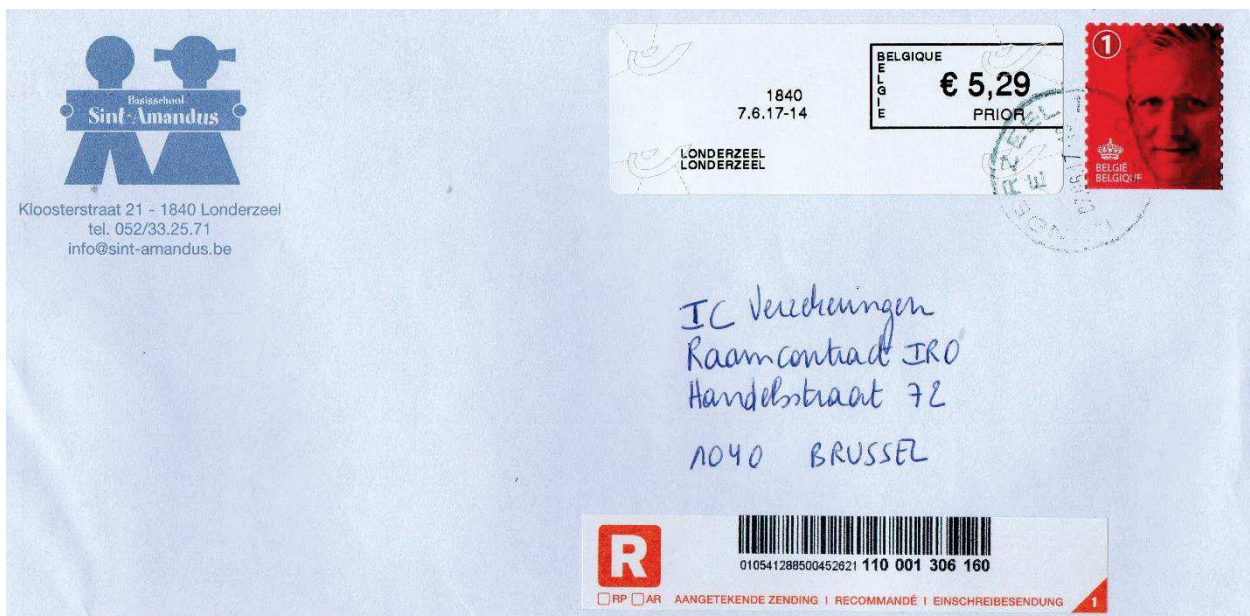 Basisschool
Sint-Amandus
Kloosterstraat 21 - 1840 Londerzeel
tel. 052/33.25.71
info@sint-amandus.be
1840
7.6.17-14
LONDERZEEL
LONDERZEEL
BELGIQUE
BELGIE
€ 5,29
PRIOR
1
BELGIË
BELGIQUE
IC Verzekeringen
Raamcontract IRO
Handelsstraat 72
1040 BRUSSEL
R
010541288500452621 110 001 306 160
RP AR AANGETEKENDE ZENDING I RECOMMANDÉ I EINSCHREIBESENDUNG 1